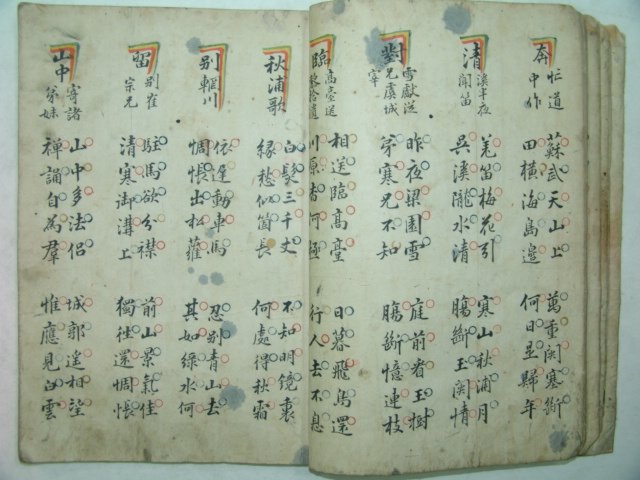 奔
忙道
中作
蘇武天山上 萬重関塞断
田橫海島邊 何日是歸年
清
溪半夜
聞笛
羌笛梅花引 寒山秋浦月
吳溪隴水清 腸斷玉関情
對
雪獻從
兄虞城
宰
昨夜梁園雪 庭前看玉樹
弟寒兄不知 腸斷憶連枝
臨
高臺送
黎拾遺
相送臨高臺 日暮飛鳥還
川原杳何極 行人去不息
秋浦歌
白髮三千丈 不知明鏡裏
緣愁似箇長 何處得秋霜
別輞川
依遲動車馬 忍別青山去
惆悵出松蘿 其如綠水何
留
別崔
宗兄
駐馬欲分襟 前山景氣佳
清寒御溝上 獨往還惆悵
山中
寄諸
弟妹
山中多法侶 城郭遙相望
禪誦自為羣 惟應見白雲